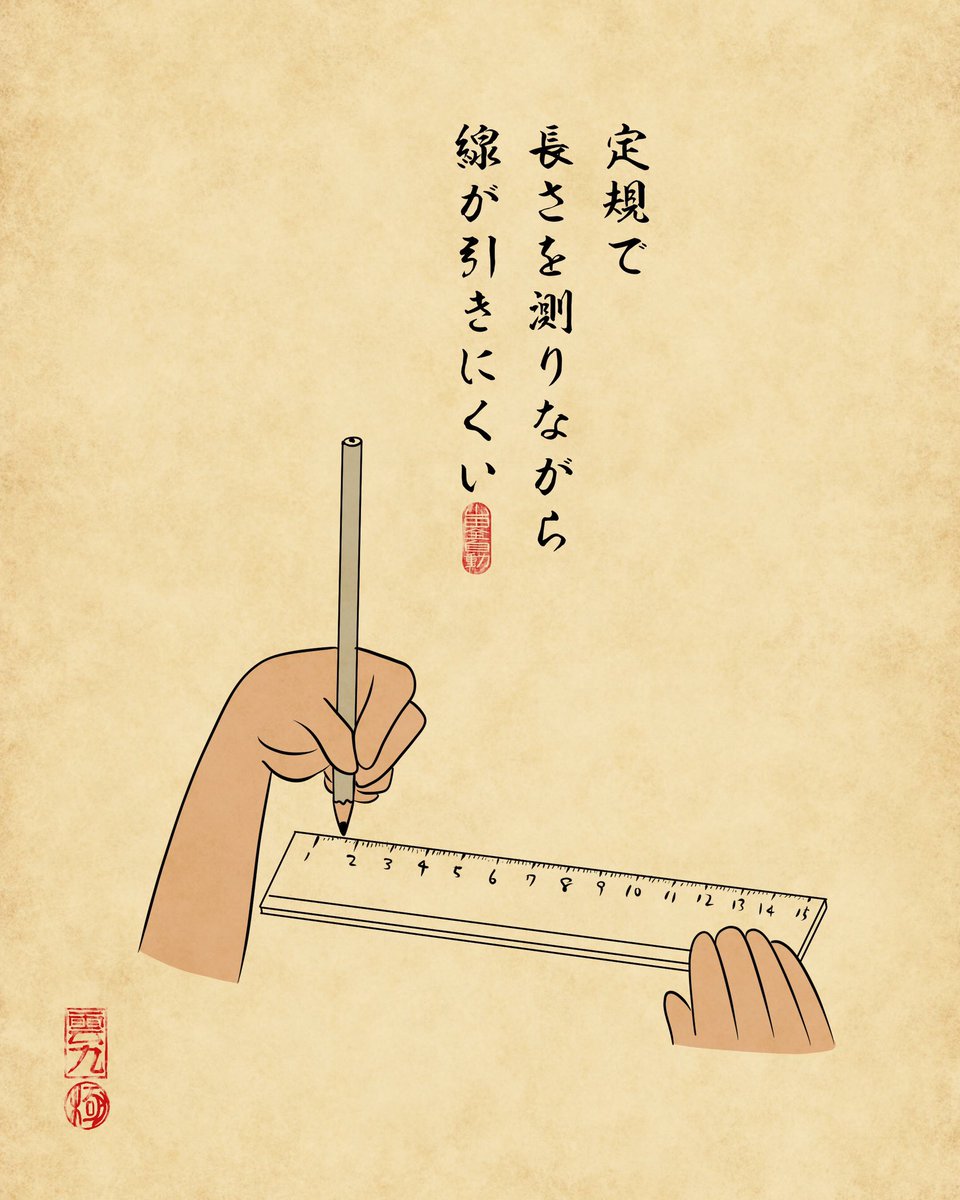 定規で
長さを測りながら
線が引きにくい
1 2 3 4 5 6 7 8 9 10 11 12 13 14 15
雲九